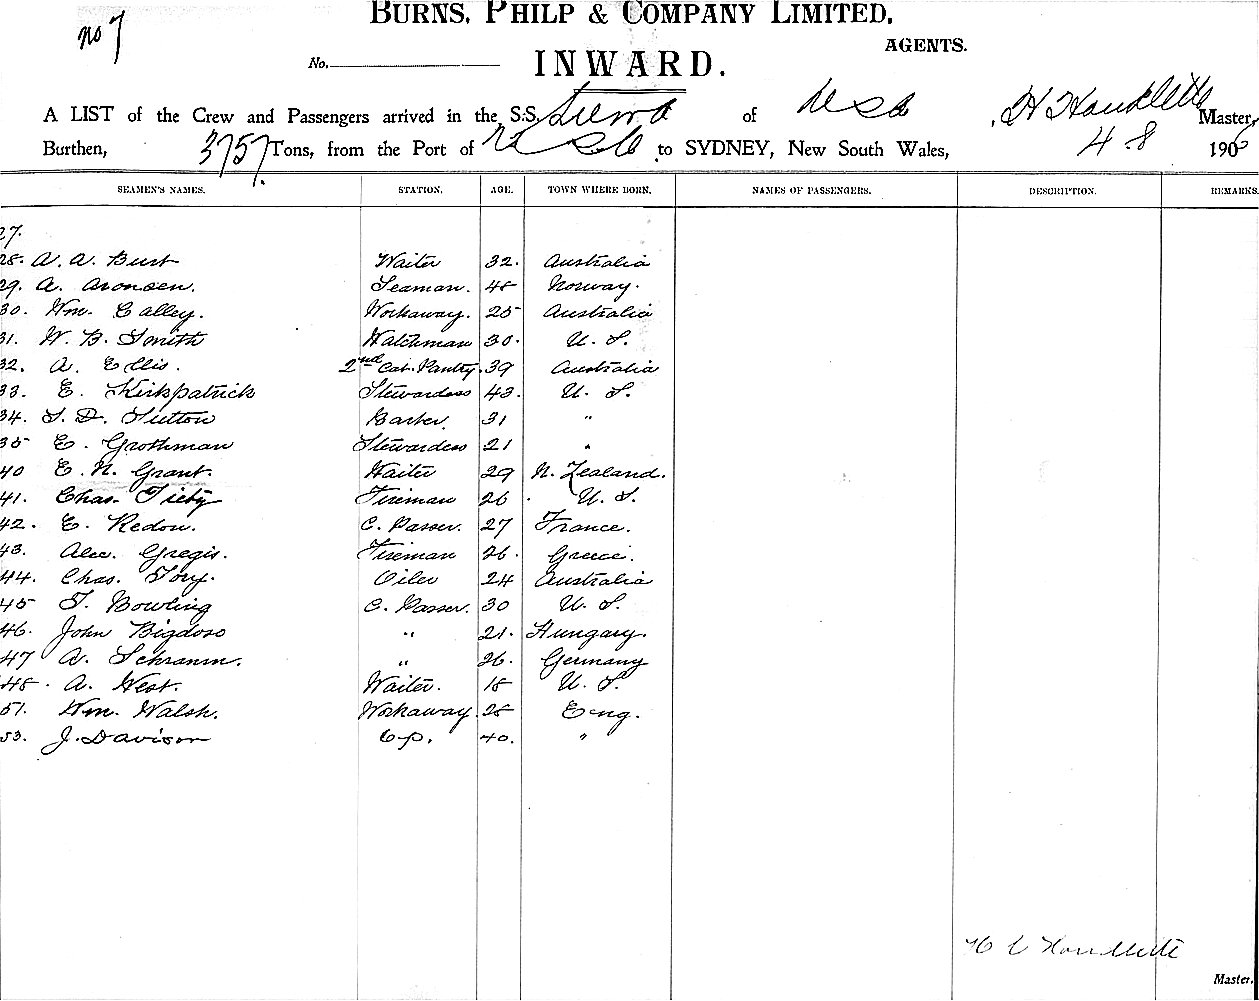 no 7
BURNS, PHILP & COMPANY LIMITED,
AGENTS.
No.
INWARD.
A LIST of the Crew and Passengers arrived in the S.S. of Master,
Burthen, 3757 Tons, from the Port of to SYDNEY, New South Wales, 4-8 1906
SEAMEN'S NAMES. STATION. AGE. TOWN WHERE BORN. NAMES OF PASSENGERS. DESCRIPTION. REMARKS.
27.
28. A. A. Burt Waiter 32. Australia
29. A. Aronsen. Seaman. 48 Norway.
30. Wm. Calley. Workaway. 25 Australia
31. W. B. Smith Watchman 30. U. S.
32. A. Ellis. 2nd Cab. Pantry. 39 Australia
33. E. Kirkpatrick Stewardess 43. U. S.
34. S. D. Sutton Barber 31 "
35 E. Grothman Stewardess 21 "
40 E. N. Grant. Waiter 29 N. Zealand.
41. Chas. Fireman 26 U. S.
42. E. Redon. C. Passer. 27 France.
43. Alec. Gregis. Fireman 26. Greece.
44. Chas. Tory. Oiler 24 Australia
45 T. Bowling C. Passer. 30 U. S.
46. John Bigdoso " 21. Hungary.
47 A. Schramm. " 26. Germany
48. A. West. Waiter. 18 U. S.
51. Wm. Walsh. Workaway. 28 Eng.
53. J. Davison 40. "
Master.